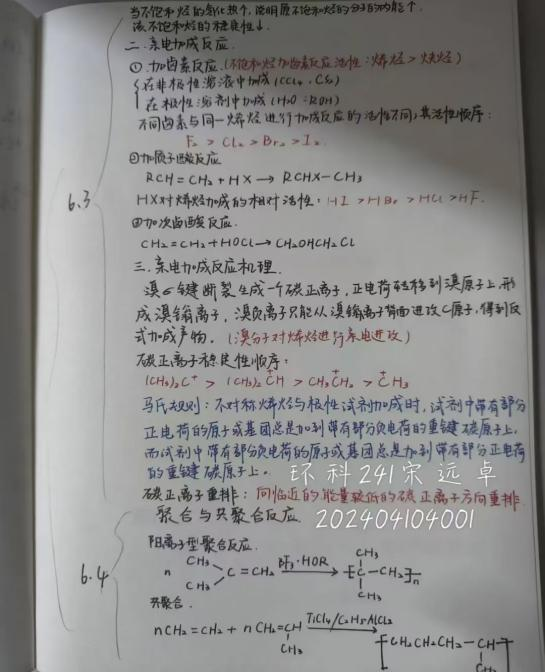 当不饱和烃的氢化热↑,说明原不饱和烃的分子的内能↑
该不饱和烃的稳定性↓.
二.亲电加成反应.
① 加卤素反应.(不饱和烃加卤素反应活性:烯烃>炔烃)
在非极性溶液中加成(CCl4、CS2)
在极性溶剂中加成(H2O、ROH)
不同卤素与同一烯烃进行加成反应的活性不同,其活性顺序:
F2 > Cl2 > Br2 > I2.
②加质子酸反应
RCH=CH2+HX→RCHX-CH3
HX对烯烃加成的相对活性:HI>HBr>HCl>HF.
③加次卤酸反应.
CH2=CH2+HOCl→CH2OHCH2Cl
三.亲电加成反应机理.
溴σ键断裂生成一个碳正离子,正电荷转移到溴原子上,形
成溴鎓离子,溴负离子只能从溴鎓离子背面进攻C原子,得到反
式加成产物.(溴分子对烯烃进行亲电进攻)
碳正离子稳定性顺序:
(CH3)3C+ > (CH3)2CH+ > CH3CH2+ > CH3+
马氏规则:不对称烯烃与极性试剂加成时,试剂中带有部分
正电荷的原子或基团总是加到带有部分负电荷的重键碳原子上,
而试剂中带有部分负电荷的原子或基团总是加到带有部分正电荷
的重键碳原子上.
环科241宋远卓
碳正离子重排:向临近的能量较低的碳正离子方向重排.
6.3
聚合与共聚合反应.
202404104001
阳离子型聚合反应.
n CH3 CH3 C=CH2 BF3·HOR [C-CH2]n CH3 CH3
6.4
共聚合.
nCH2=CH2 + nCH2=CH CH3 TiCl4/C2H5AlCl2 [CH2CH2CH2-CH CH3